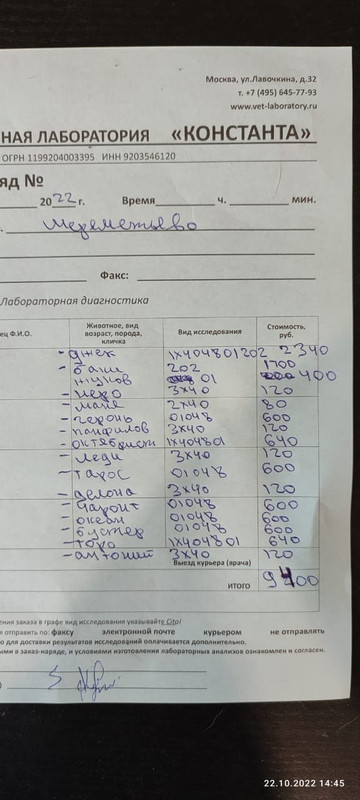 Москва, ул.Лавочкина, д.32
т. +7 (495) 645-77-93
www.vet-laboratory.ru
НАЯ ЛАБОРАТОРИЯ «КОНСТАНТА»
ОГРН 1199204003395 ИНН 9203546120
ЯД №
2022 г. Время ч. мин.
Шереметьево
Факс:
Лабораторная диагностика
ец Ф.И.О. Животное, вид возраст, порода, кличка Вид исследования Стоимость, руб.
- Джек 1x404801202 2340
- баки 202 1700
жуков 01 400
- неро 3x40 120
- маня 2x40 80
- герань 01048 600
- панфилов 3x40 120
- октябрист 1x404801 640
- леди 3x40 120
- Тарос 01048 600
- делона 3x40 120
- Фаронт 01048 600
- океан 01048 600
- бустер 01048 600
- торо 1x404801 640
- антоний 3x40 120
Выезд курьера (врача)
ИТОГО 9400
ения заказа в графе вид исследования указывайте Cito!
отправить по: факсу электронной почте курьером не отправлять
о для доставки результатов исследований оплачивается дополнительно.
ыми в заказ-наряде, и условиями изготовления лабораторных анализов ознакомлен и согласен.
22.10.2022 14:45